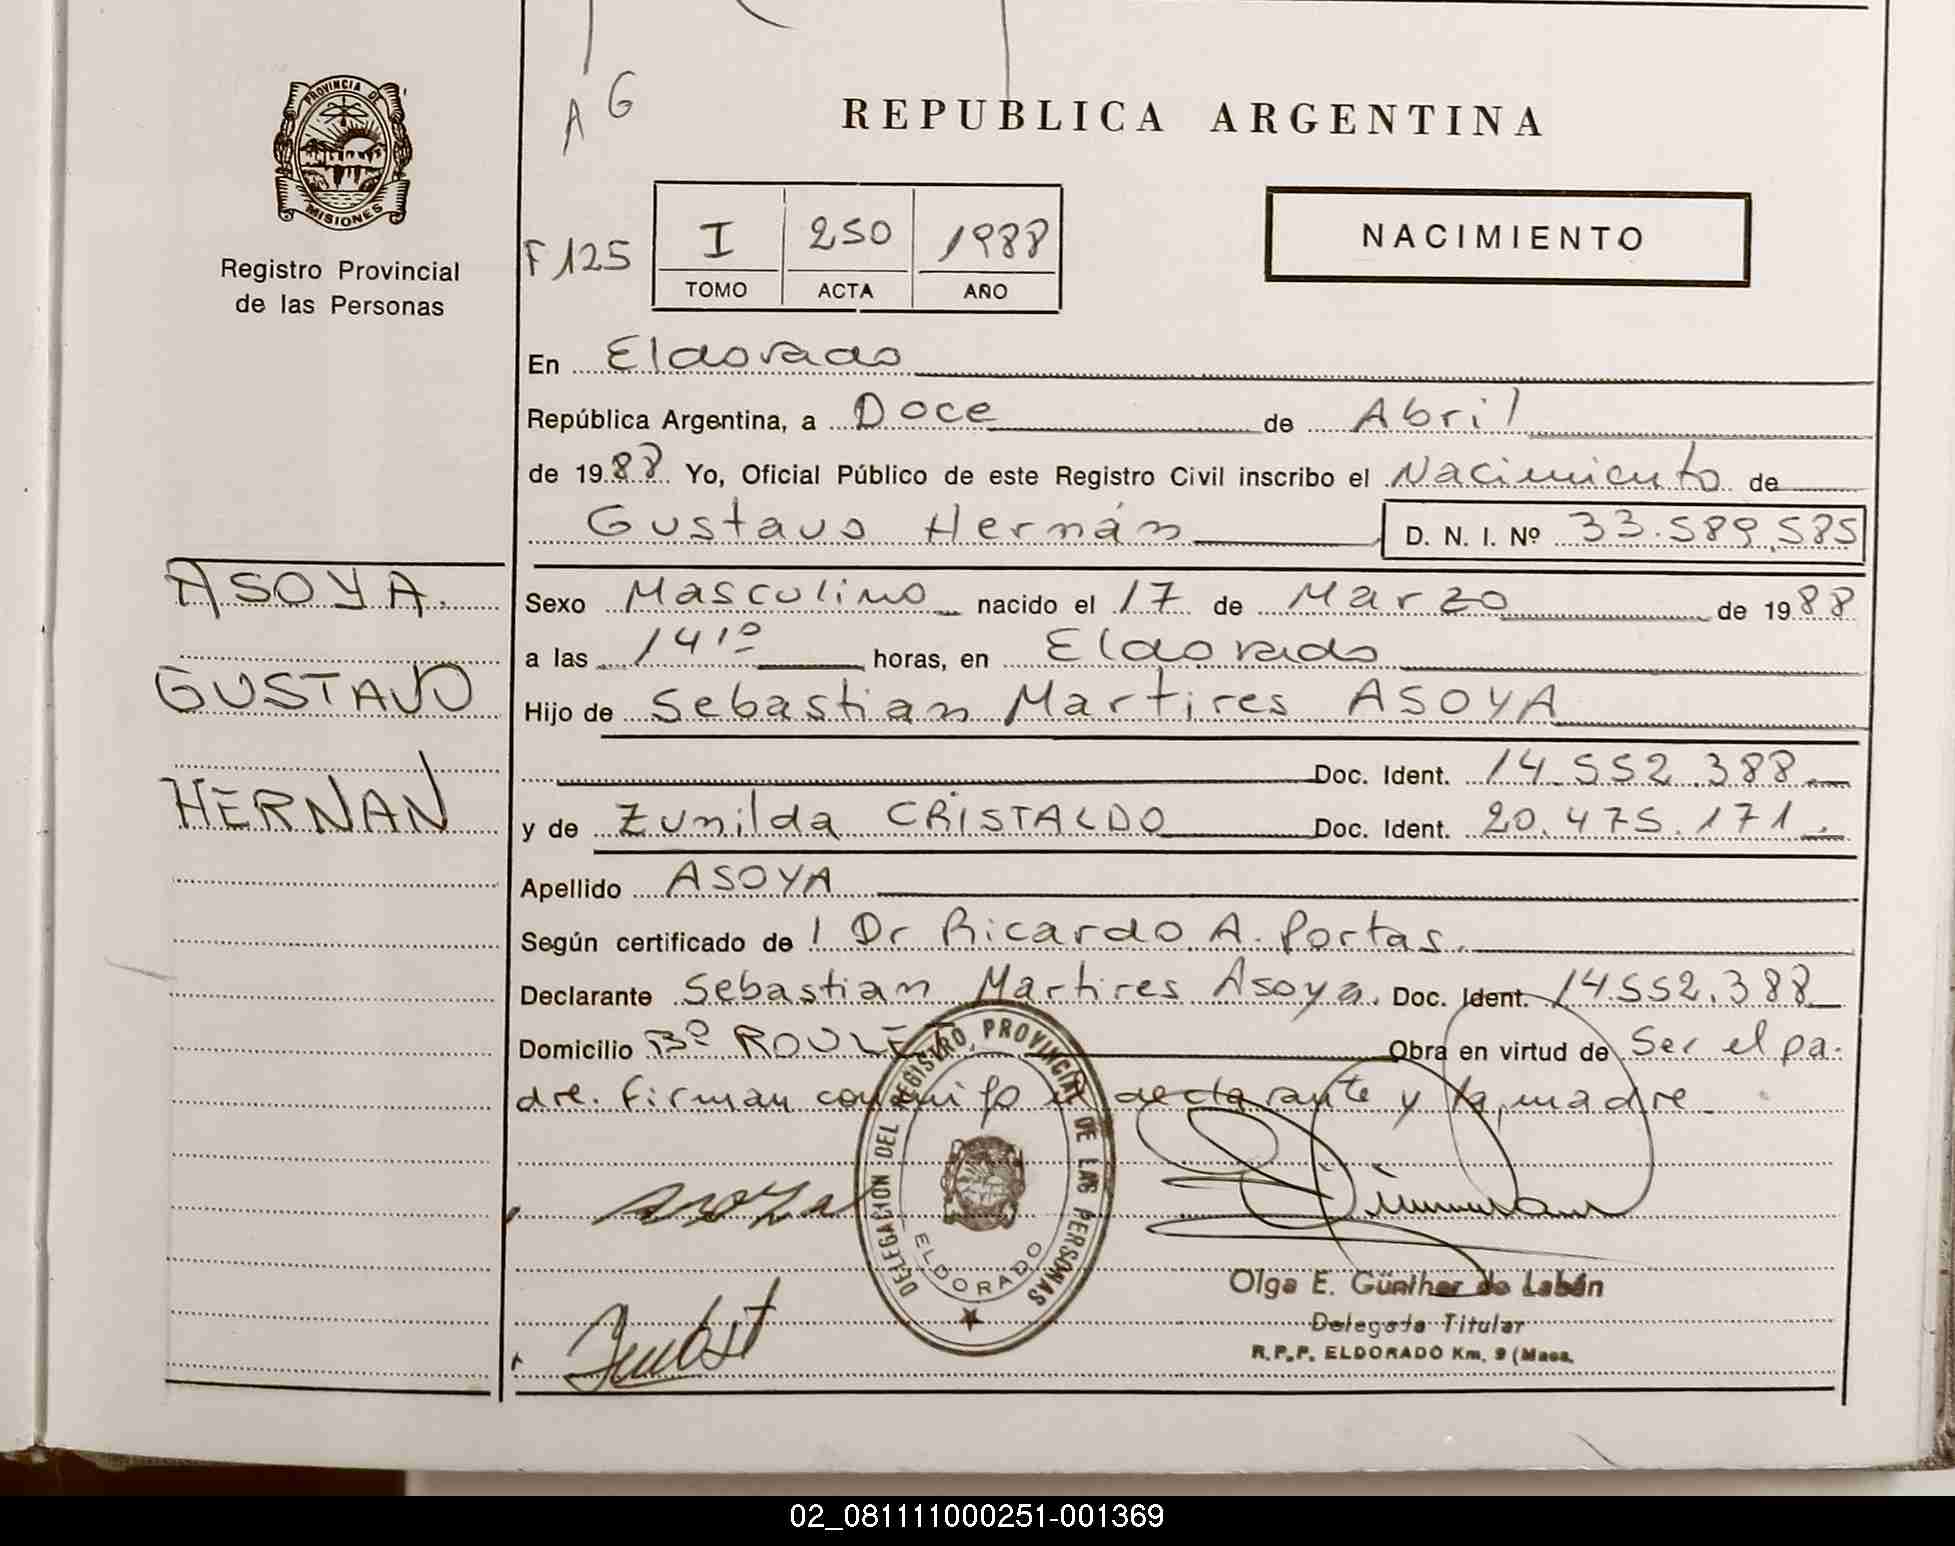 A G
REPUBLICA ARGENTINA
PROVINCIA DE
MISIONES
Registro Provincial
de las Personas
F 125
I 250 1988
TOMO ACTA AÑO
NACIMIENTO
En Eldorado
República Argentina, a Doce de Abril
de 1988 Yo, Oficial Público de este Registro Civil inscribo el Nacimiento de
Gustavo Hernán D. N. I. Nº 33.589.585
ASOYA.
GUSTAVO
HERNAN
Sexo Masculino nacido el 17 de Marzo de 1988
a las 14,10 horas, en Eldorado
Hijo de Sebastian Martires ASOYA
Doc. Ident. 14.552.388
y de Zunilda CRISTALDO Doc. Ident. 20.475.171.
Apellido ASOYA
Según certificado de l Dr Ricardo A. Portas.
Declarante Sebastian Martires Asoya. Doc. Ident. 14.552.388
Domicilio Bº ROULET Obra en virtud de Ser el pa-
dre. Firman conmigo el declarante y la madre.
DELEGACION DEL REGISTRO PROVINCIAL DE LAS PERSONAS
ELDORADO
Asoya
Olga E. Günther de Labán
Delegada Titular
R.P.P. ELDORADO Km. 9 (Mnes.
02_081111000251-001369